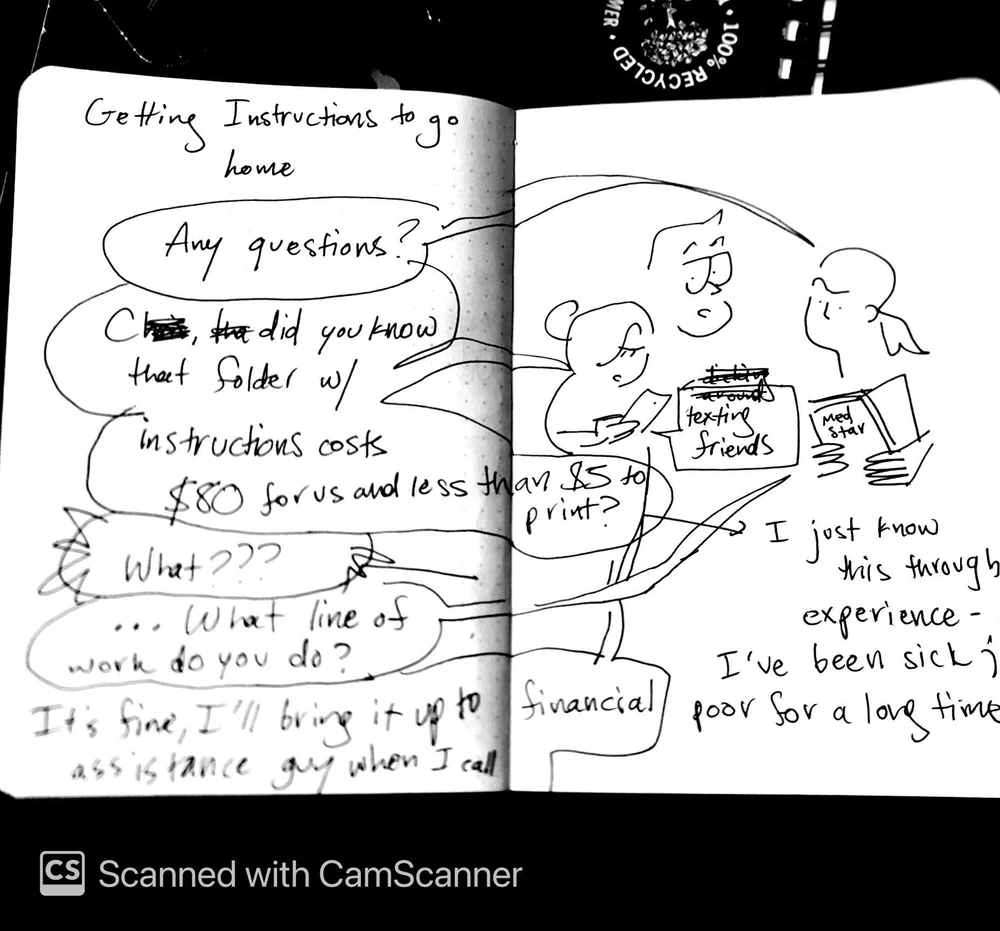 MER • 100% RECYCLED
Getting Instructions to go
home
Any questions?
did you know
that folder w/
instructions costs
$80 for us and less than $5 to
print?
What???
... What line of
work do you do?
It's fine, I'll bring it up to financial
assistance guy when I call
texting
friends
Med
Star
I just know
this through
experience -
I've been sick ;
poor for a long time
CS Scanned with CamScanner